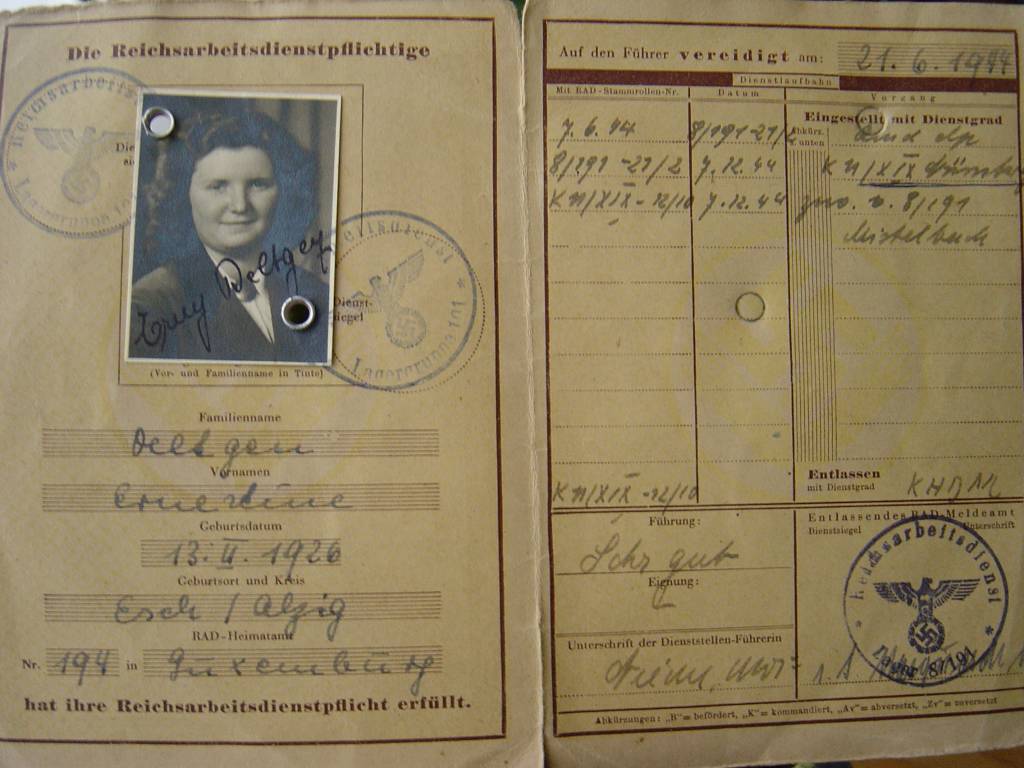 Die Reichsarbeitsdienstpflichtige
Reichsarbeits
Lagergruppe 191
Die
sie
Erny Deltgen
Reichsdienst
Dienst-
siegel
Lagergruppe 191
(Vor- und Familienname in Tinte)
Familienname
Deltgen
Vornamen
Ernestine
Geburtsdatum
13. II. 1926
Geburtsort und Kreis
Esch / Alzig
RAD-Heimatamt
Nr. 194 in Luxemburg
hat ihre Reichsarbeitsdienstpflicht erfüllt.
Auf den Führer vereidigt am: 21. 6. 1944
Dienstlaufbahn
Mit RAD-Stammrollen-Nr. Datum Vorgang
Eingestellt mit Dienstgrad
Abkürz. unten
7. 6. 44 8/191-27/2
8/191-27/2 7.12.44 K 11/XIX
K 11/XIX-12/10 7.12.44 zuv. v. 8/191
Mistelbach
K 11/XIX-12/10
Entlassen
mit Dienstgrad KHDM
Führung:
Sehr gut
Eignung:
Unterschrift der Dienststellen-Führerin
Entlassendes RAD-Meldeamt
Dienstsiegel Unterschrift
Reichsarbeitsdienst
Lager 8/191
Abkürzungen: „B"= befördert, „K"= kommandiert, „Av"= abversetzt, „Zv"= zuversetzt